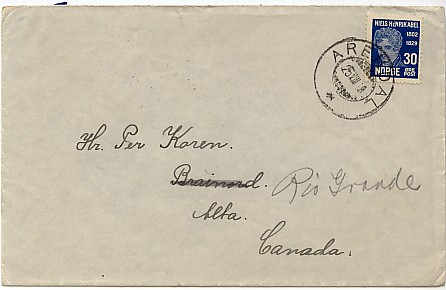 NIELS HENRIK ABEL
1802
1829
30
NORGE ØRE
POST
ARENDAL
Hr. Per Koren.
Brainard. Rio Grande
Alta.
Canada.